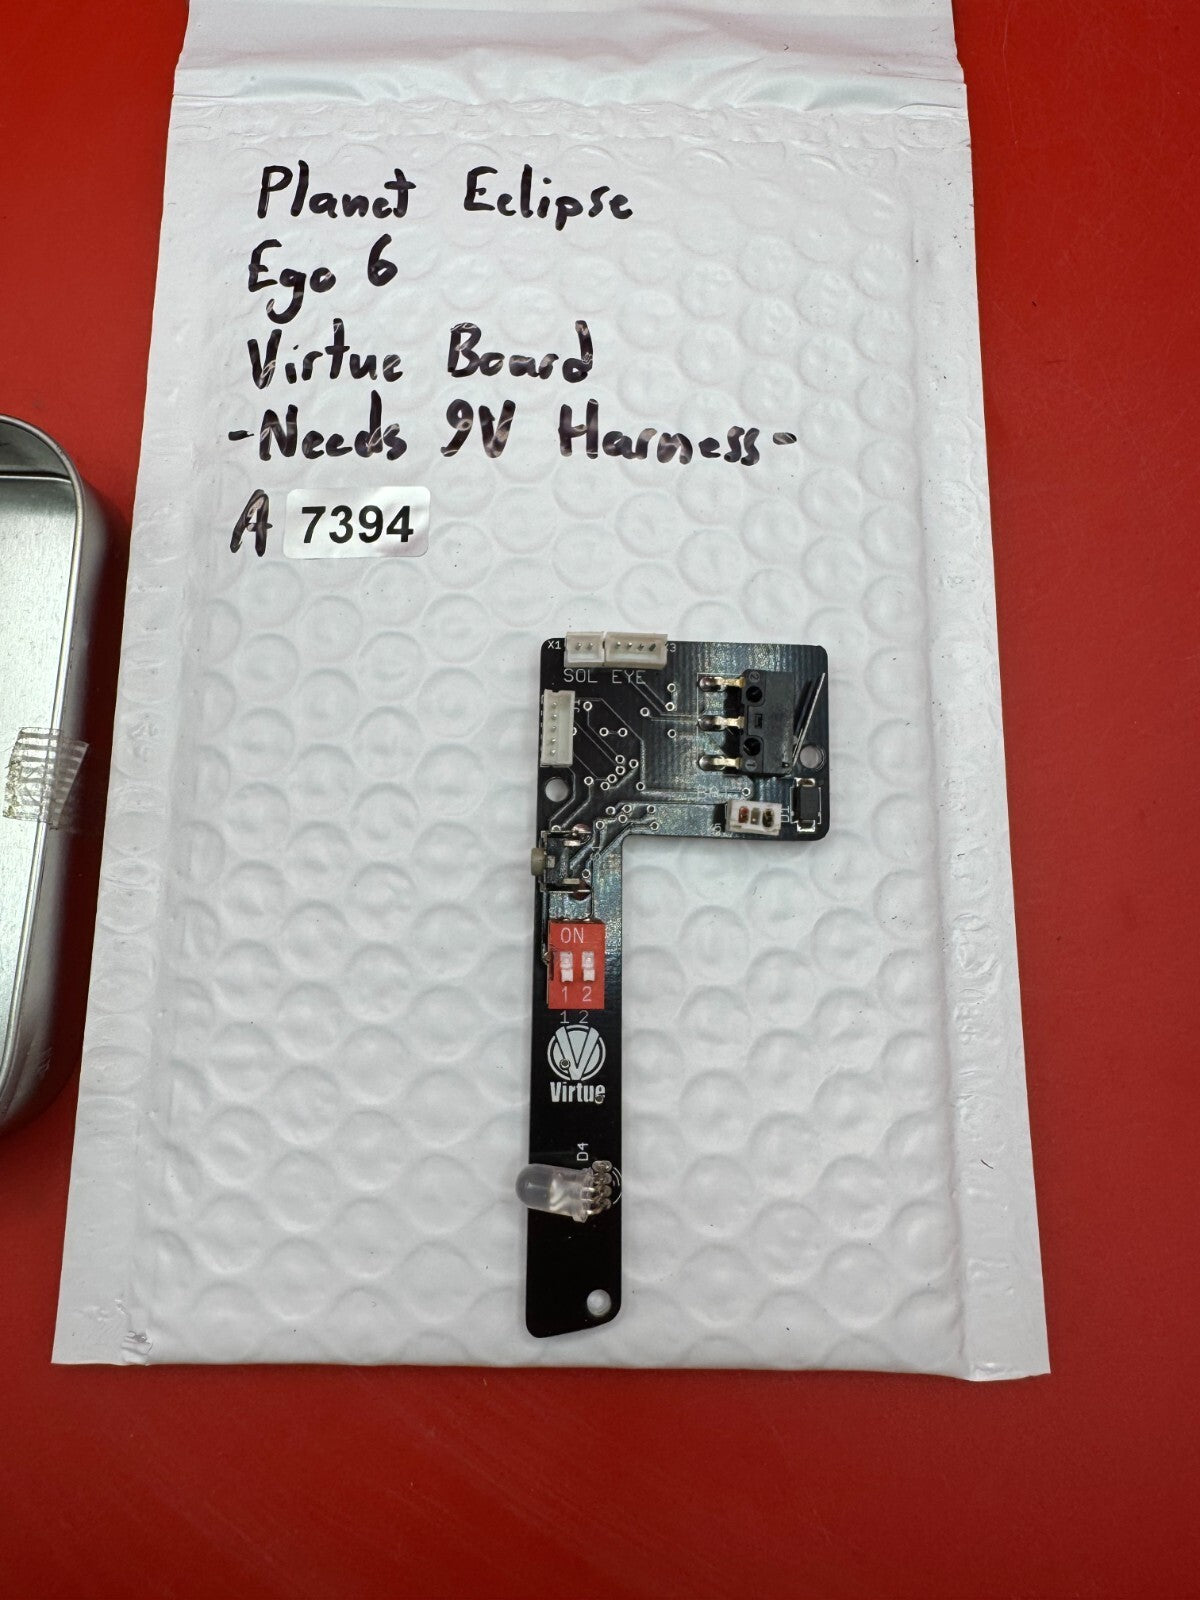 Planet Eclipse
Ego 6
Virtue Board
-Needs 9V Harness-
A 7394
X1 X3
SOL EYE
ON
1 2
1 2
Virtue
D4